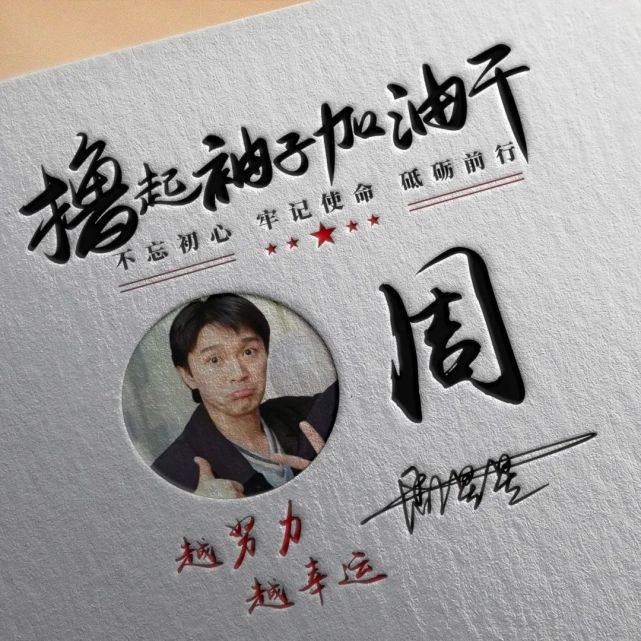 撸起袖子加油干
不忘初心 牢记使命 砥砺前行
周
周星星
越努力
越幸运